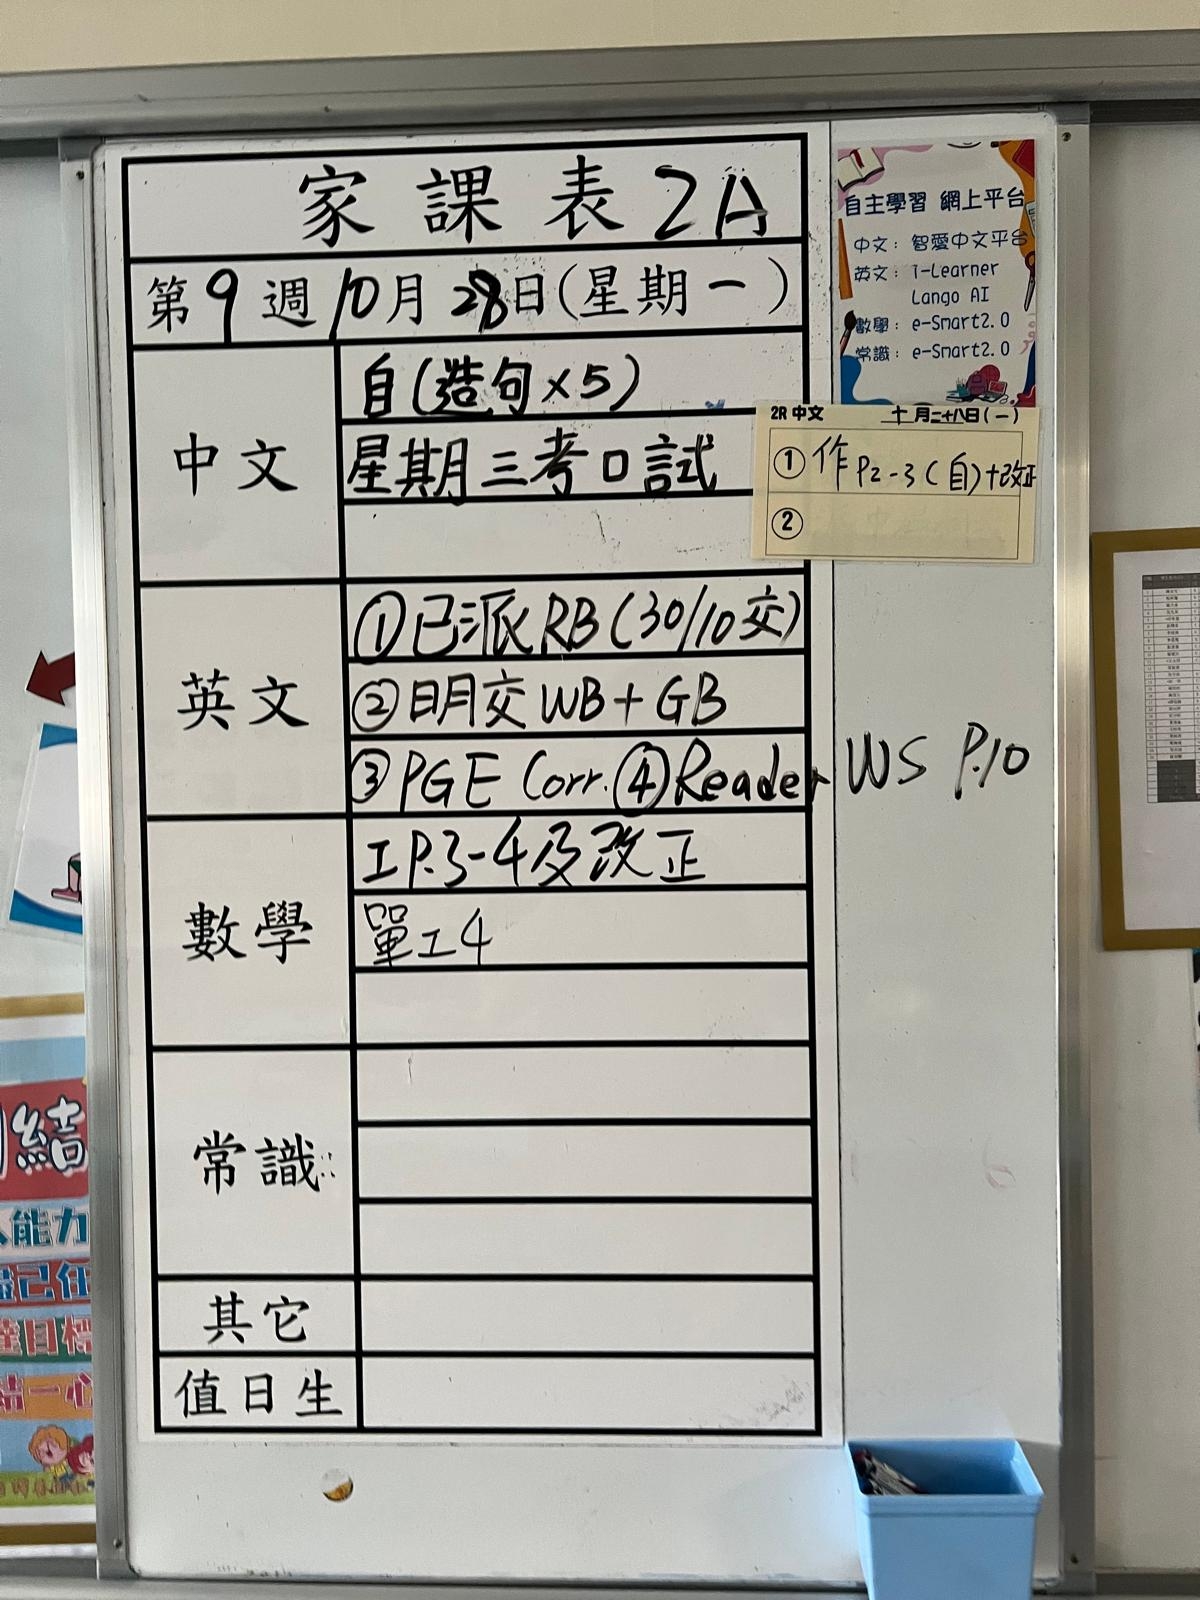 家課表 2A
第9週10月28日(星期一)
中文
自(造句×5)
星期三考口試
英文
①已派RB(30/10交)
②明交WB+GB
③PGE Corr.④Reader WS P.10
數學
工P.3-4及改正
單工4
常識
其它
值日生
自主學習 網上平台
中文：智愛中文平台
英文：i-Learner
Lango AI
數學：e-Smart2.0
常識：e-Smart2.0
2R中文 十月二十八日(一)
①作P2-3(自)+改正
②
結
能力
己任
達目標
一心